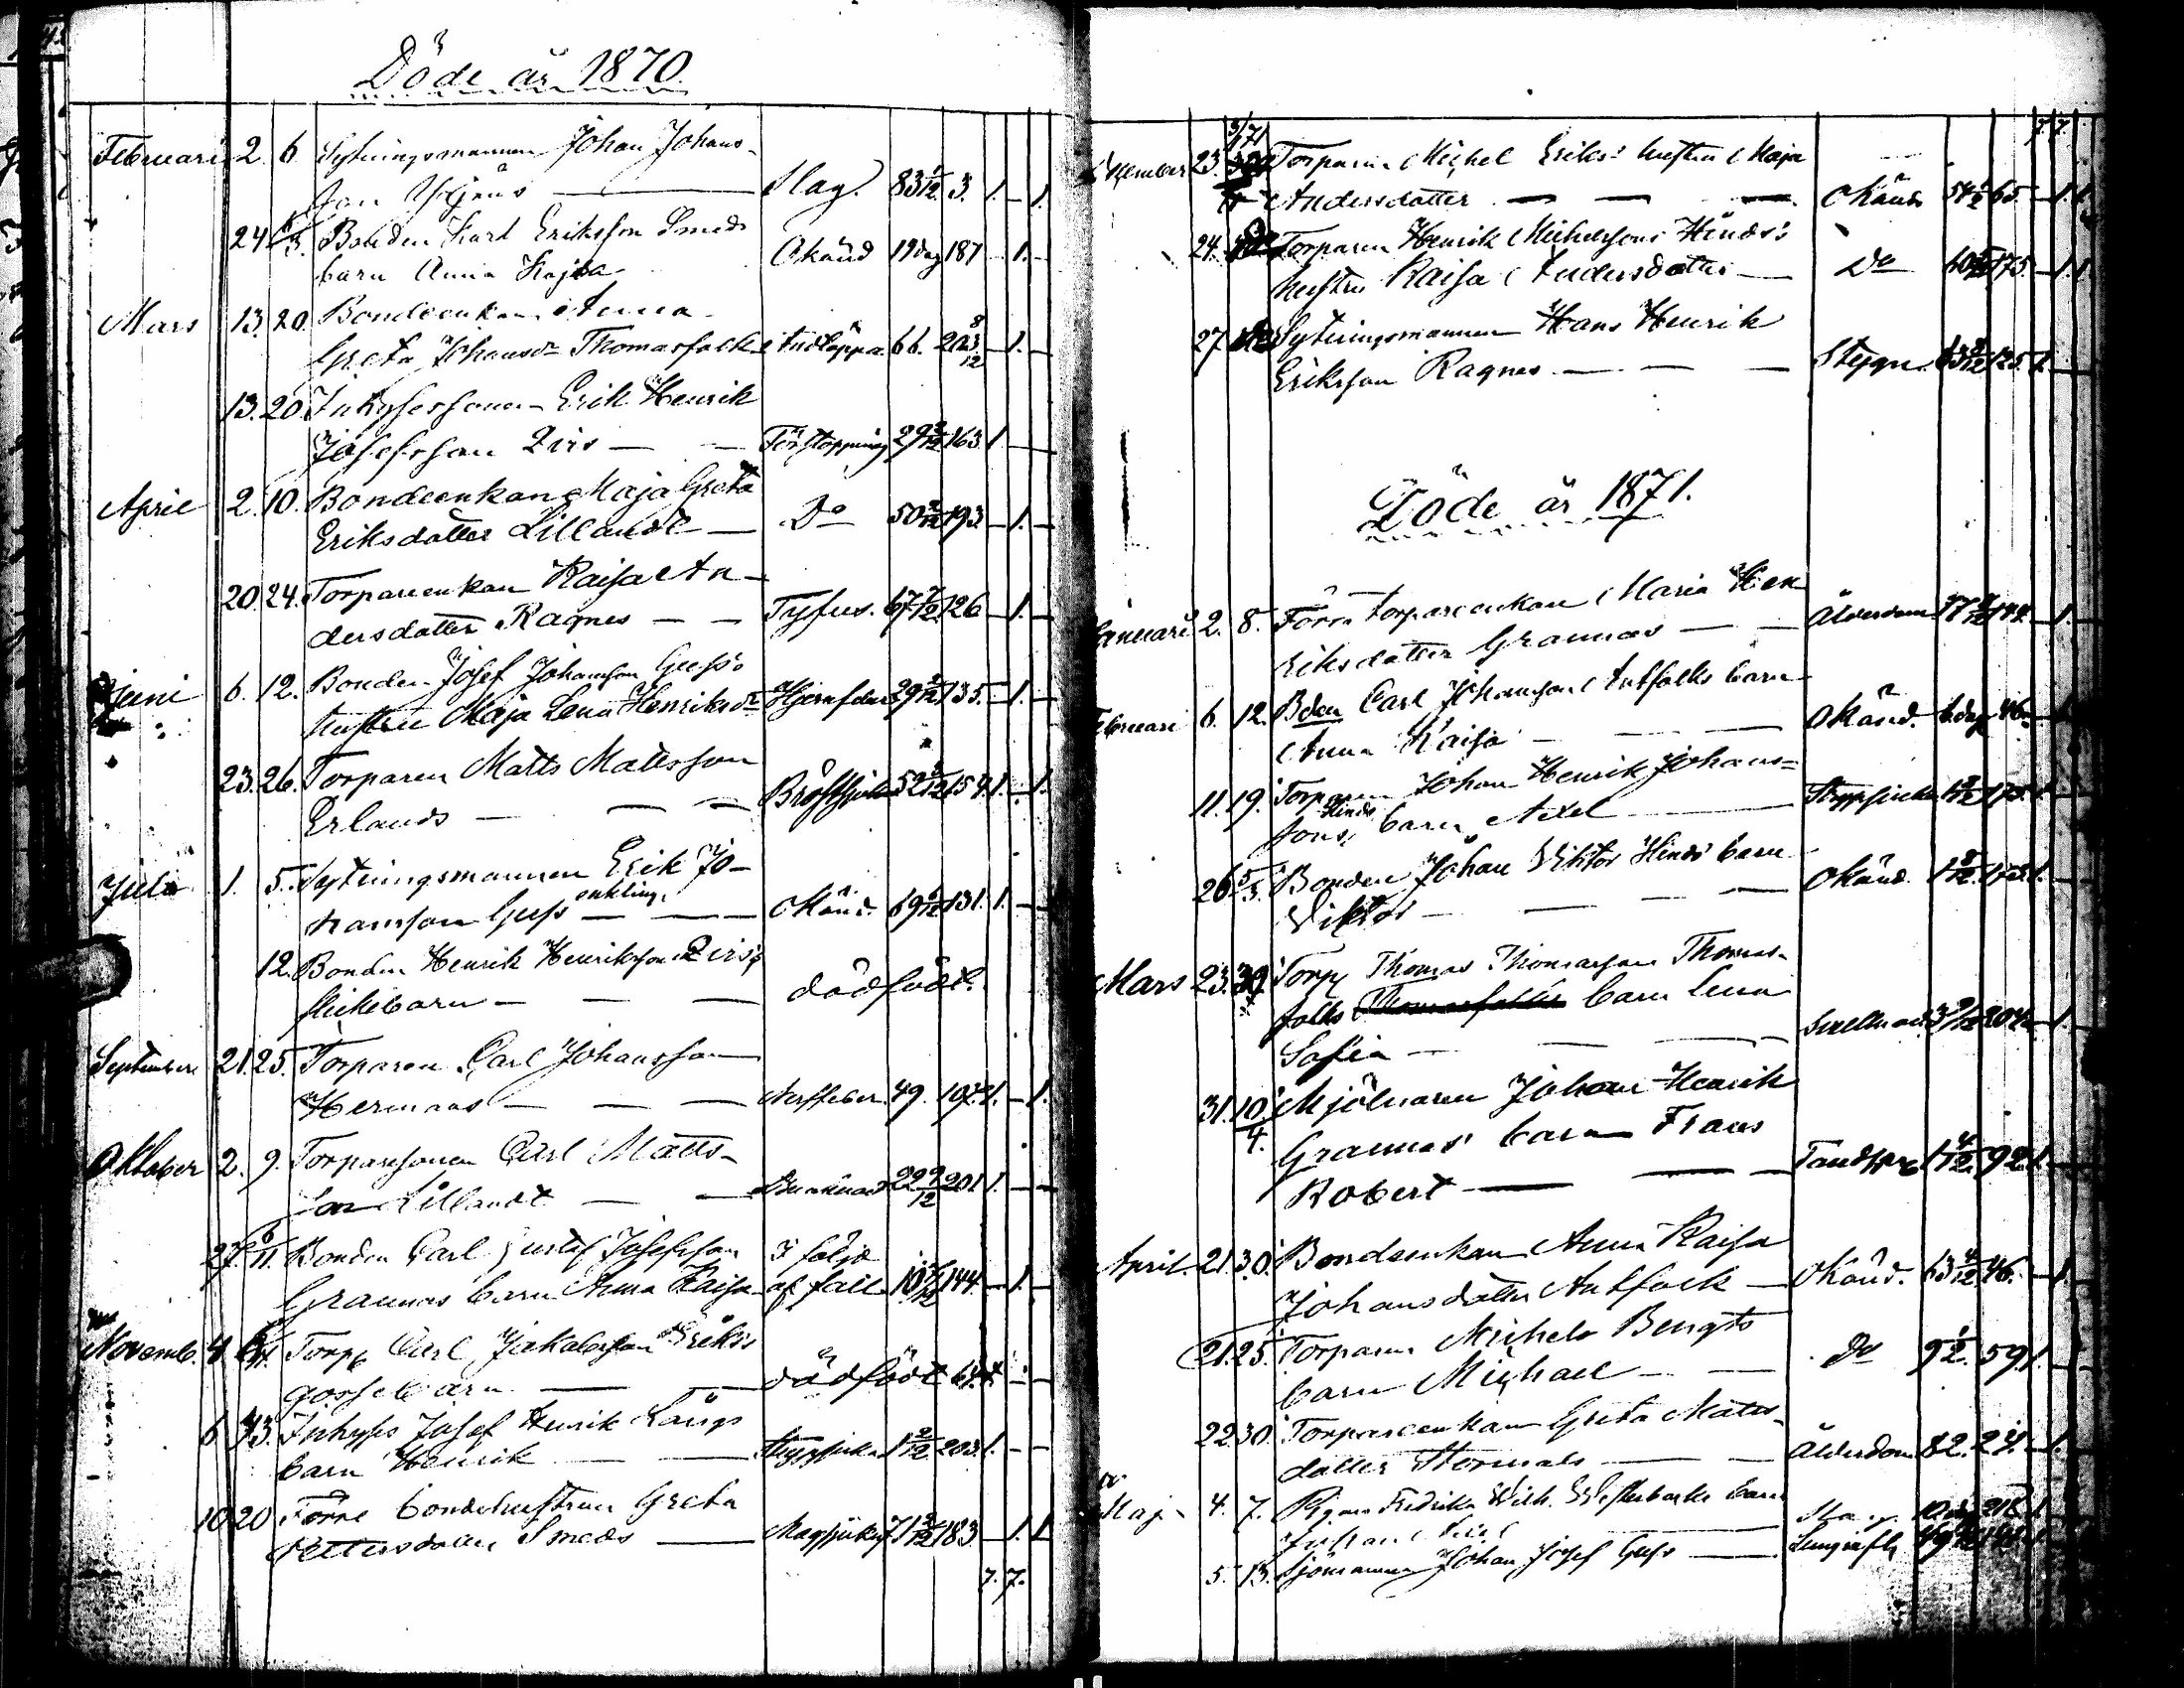 Döde år 1870.
Februari 2. 6. Sytningsmannen Johan Johans-
son Slag. 83 1/12. 3. 1. – 1.
24. 6/3. Bonden Karl Eriksson Smeds
barn Anna Kajsa Okänd 19 dag 187 1. –
Mars 13. 20. Bondeenkan Anna
Greta Johansdr Thomasfolk Andtäppa 66. – 1. –
13. 20. Inhysessonen Erik Henrik
Josefsson Zirs — — Förstoppning 29 163 1. —
April 2. 10. Bondeenkan Maja Greta
Eriksdotter Lillandt — Do 50 193 – 1. –
20. 24. Torpareenkan Kaisa An-
dersdotter Ragnes — — Tyfus. 67 7/12 126 – 1. –
Juni 6. 12. Bonden Josef Johansson Guss's
hustru Maja Lena Henriksdr Hjernfeber 29 135. – 1. –
23. 26. Torparen Matts Mattsson
Erlands — — — Bröstsjuka 52 157. 1. – 1.
Juli 1. 5. Sytningsmannen Erik Jo-
hansson Guss enkling. — — Okänd. 69 131. 1. – –
12. Bonden Henrik Henriksson Zirs's
flickebarn — — — dödfödt.
September 21. 25. Torparen Carl Johansson
Hermans — — — Nerffeber. 49. 107. 1. – 1.
Oktober 2. 9. Torparesonen Carl Matts-
son Lillandt — — 22 9/12 201 1. – –
27. 6/11 Bonden Carl Gustaf Josefsson I följd
Grannas barn Anna Kaisa af fall 10 144. – 1. –
Novemb. 4. Torp. Carl Jakobsson Eriks's
gossebarn — — dödfödt 64.
6. 13. Inhyses Josef Henrik Långs
barn Henrik — — Strypsjuka 1 2/12 203. 1. – –
10 20 Förre bondehustrun Greta
Pettersdotter Smeds — Magsjuka 71 183 – 1. 1.
7. 7.
7. 7.
December 23. 3/1 71 Torparen Michel Eriks's hustru Maja
Andersdotter — — — Okänd 54 65. – 1. 1.
24. Torparen Henrik Michelsons Hinds's
hustru Kaisa Andersdotter — Do 175. – 1. 1.
27. Sytningsmannen Hans Henrik
Eriksson Ragnes — — — Stygn. 63 125. 1. –
Döde år 1871.
Januari 2. 8. Förra torpareenkan Maria Hen
riksdotter Grannas — — Ålderdom 77 144. – 1.
Februari 6. 12. Bden Carl Johansson Antfolks barn
Anna Kaisa — — — Okänd. 6 dag 46. – 1.
11. 19. Torparen Johan Henrik Johans=
sons Hinds barn Axel — Strypsjuka 1 1.
26 5/3. Bonden Johan Viktor Hinds' barn
Viktor — — — Okänd. 1 1.
Mars 23. 30. Torp. Thomas Thomasson Thomas-
folks barn Lena
Sofia — — — 3 204 – 1.
31. 10/4. Mjölnaren Johan Henrik
Grannas' barn Frans
Robert — — — 1 4/12. 92 1.
April. 21. 30. Bondeenkan Anna Kaisa
Johansdotter Antfolk — Okänd. 63 4/12. 46. – 1.
21. 25. Torparen Michels Bengts
barn Michael — — do 9 1/2. 59 1.
22. 30. Torpareenkan Greta Matts-
dotter Stormals — — Ålderdom 82. 24. – 1.
Maj 4. 7. Pigan Fredrika Wilh. Westerbacks barn
Johan 218. 1.
5. 13. Sjömannen Johan Josef Guss —